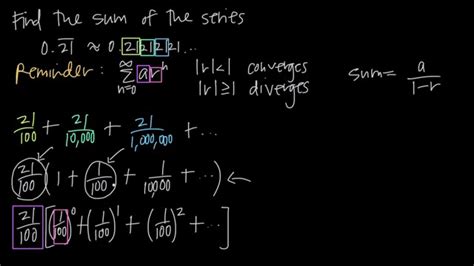 Find the sum of the series
0.2̅1̅ ≈ 0.21212121...
Reminder: ∞∑n=0 arⁿ |r|<1 converges |r|≥1 diverges sum = a/(1-r)
21/100 + 21/10,000 + 21/1,000,000 + ...
21/100 (1 + 1/100 + 1/10,000 + ...) ←
21/100 [(1/100)⁰ + (1/100)¹ + (1/100)² + ...]